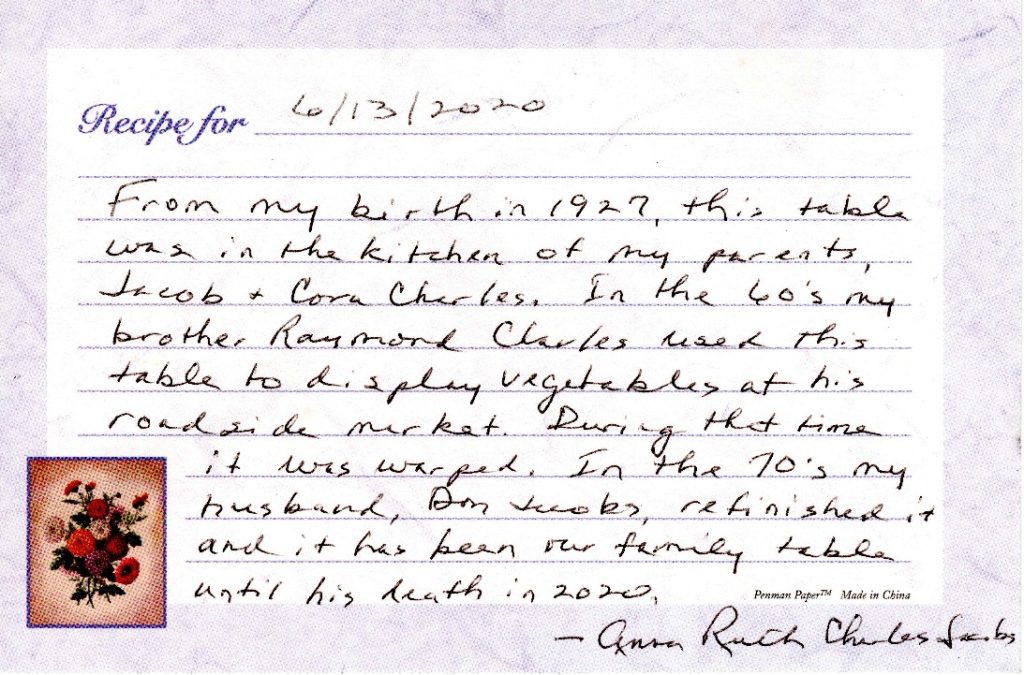 Recipe for 6/13/2020
From my birth in 1927, this table
was in the kitchen of my parents,
Jacob + Cora Charles. In the 60's my
brother Raymond Charles used this
table to display vegetables at his
roadside market. During that time
it was warped. In the 70's my
husband, Don Jacobs, refinished it
and it has been our family table
until his death in 2020.
Penman Paper™ Made in China
— Anna Ruth Charles Jacobs